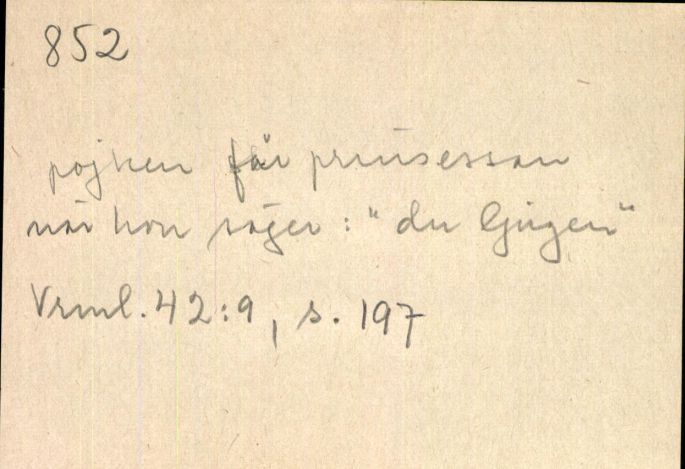 852
pojken får prinsessan
när hon säger: "du ljuger"
Vrml. 42:9, s. 197